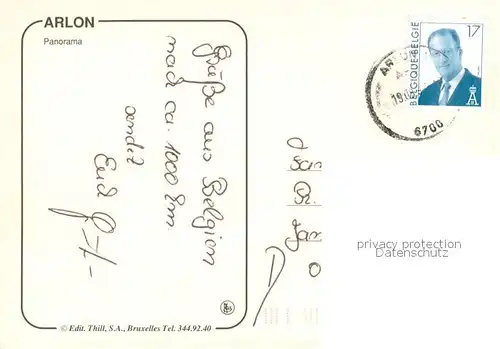 ARLON
Panorama
Grüße aus Belgien
nach ca. 1000 km
sendet
Euch
© Edit. Thill, S.A., Bruxelles Tel. 344.92.40
17
BELGIQUE-BELGIE
6700
privacy protection
Datenschutz